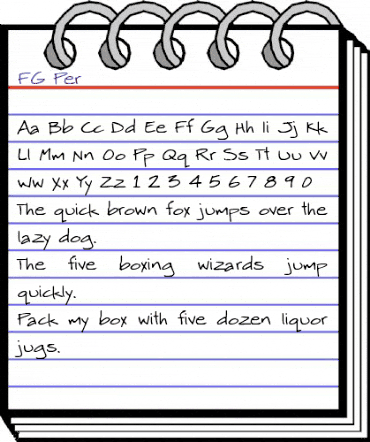 FG Per
Aa Bb Cc Dd Ee Ff Gg Hh Ii Jj Kk
Ll Mm Nn Oo Pp Qq Rr Ss Tt Uu Vv
Ww Xx Yy Zz 1 2 3 4 5 6 7 8 9 0
The quick brown fox jumps over the
lazy dog.
The five boxing wizards jump
quickly.
Pack my box with five dozen liquor
jugs.